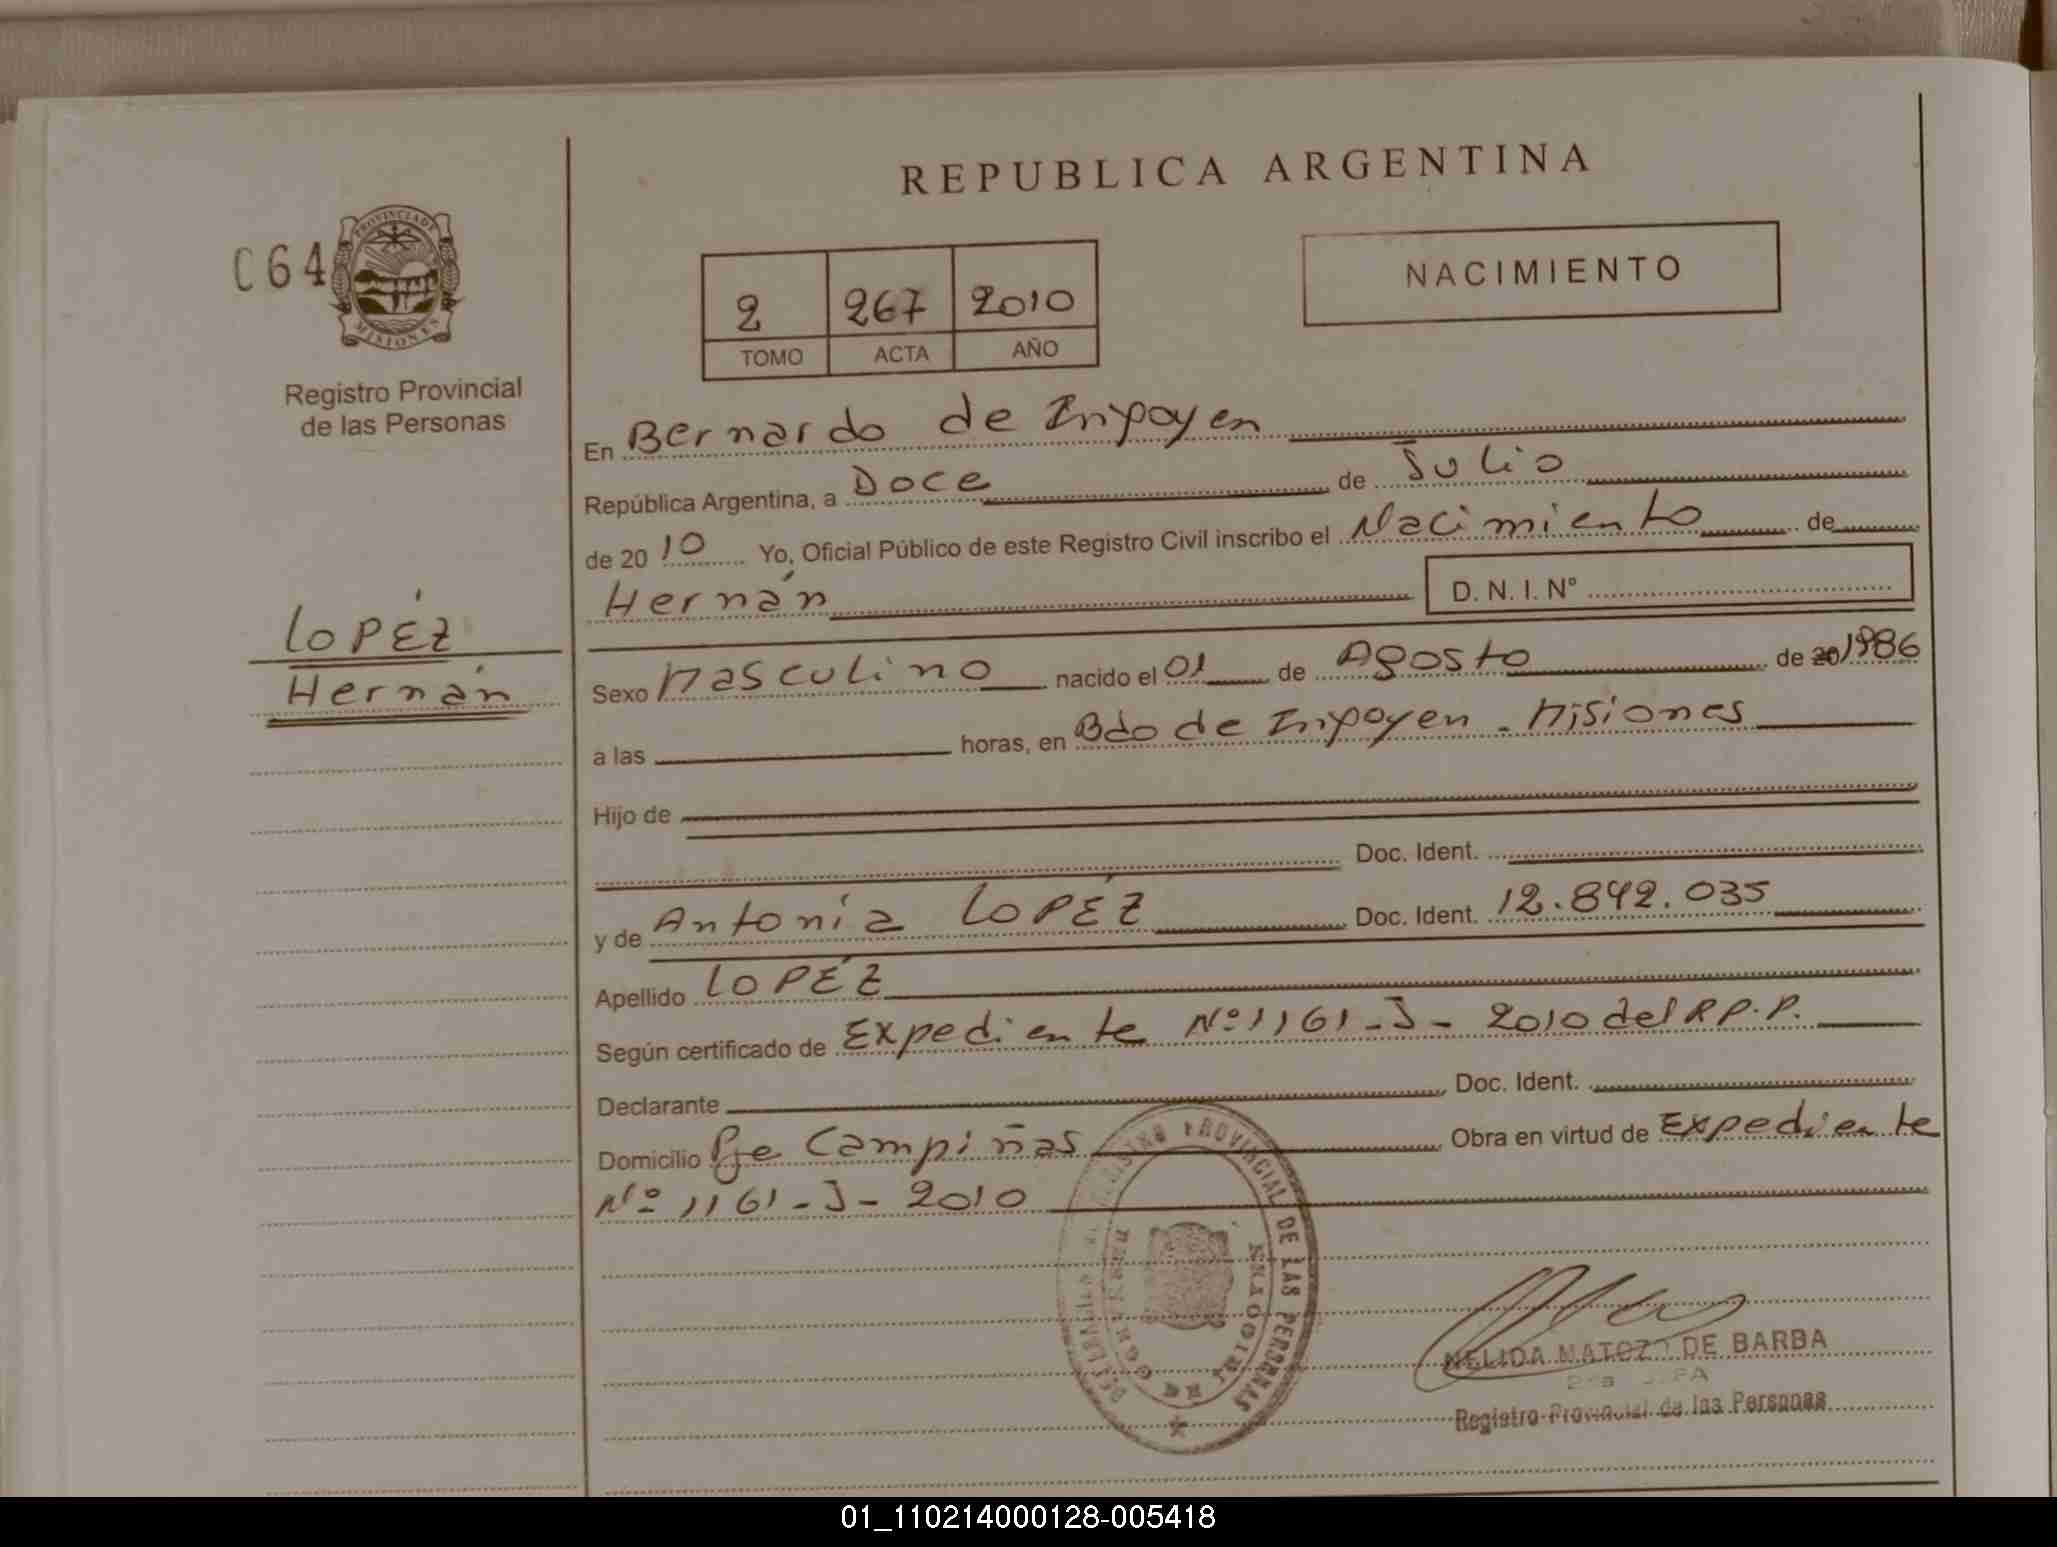 REPUBLICA ARGENTINA
C64
PROVINCIA DE
MISIONES
Registro Provincial
de las Personas
NACIMIENTO
2 267 2010
TOMO ACTA AÑO
En Bernardo de Irigoyen
República Argentina, a Doce de Julio
de 20 10 Yo, Oficial Público de este Registro Civil inscribo el Nacimiento de
Hernán D. N. I. N°
LOPÉZ
Hernán
Sexo Masculino nacido el 01 de Agosto de 20 1986
a las horas, en Bdo de Irigoyen - Misiones
Hijo de
Doc. Ident.
y de Antonia LOPÉZ Doc. Ident. 12.842.035
Apellido LOPÉZ
Según certificado de Expediente Nº 1161-J-2010 del R.P.P.
Declarante Doc. Ident.
Domicilio Pje Campiñas Obra en virtud de Expediente
Nº 1161-J-2010
REGISTRO PROVINCIAL DE LAS PERSONAS
NELIDA MATOZO DE BARBA
Registro Provincial de las Personas
01_110214000128-005418